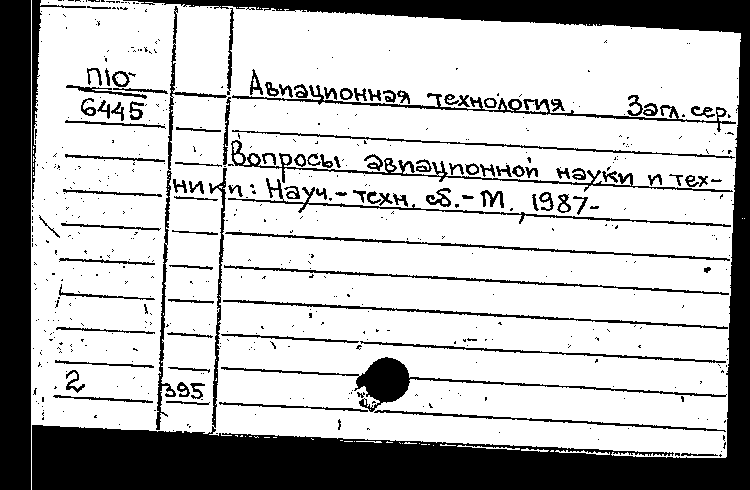 П10
6445
Авиационная технология. Загл. сер.
Вопросы авиационной науки и тех-
ники: Науч.-техн. сб.-М., 1987-
2
395